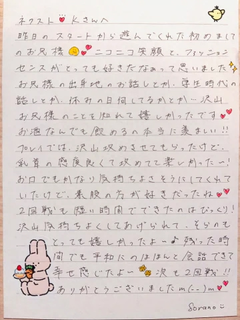 ネクスト♥Kさんへ
昨日のスタートから遊んでくれた初めまして
のお兄様 ニコニコ笑顔と、ファッション
センスがとっても好きだなぁって思いました
お兄様の出身地のお話しとか、学生時代の
話しとか、休みの日何してるかとか…沢山
お兄様のことを知れて嬉しかったです♥
お酒なんでも飲めるの本当に羨ましい!!
プレイでは、沢山攻めさせてもらったけど、
乳首の感度良くて攻めてて楽しかったー!
お口でもかなり気持ちよさそうにしてくれて
いたけど、素股の方が好きだったね♥♥
2回戦も短い時間でできたのはびっくり!
沢山気持ちよくしてあげられて、そらのも
とっても嬉しかったよー♪残った時間
でも平和にのほほんと会話できて
幸せ感じたよー 次も2回戦!!
ありがとうございましたm(._.)m♥
Sorano